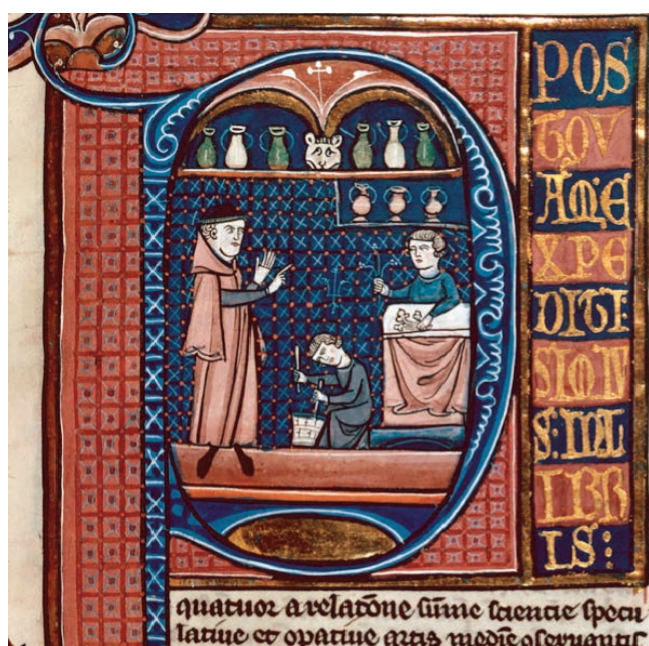 POS
TQV
AM:E
XPE
DITI:
SUMU
S:INL
IBR
IS:
quatuor a relatōne sūme scientie specu
latiue et opatiue artis medīe oseruantis